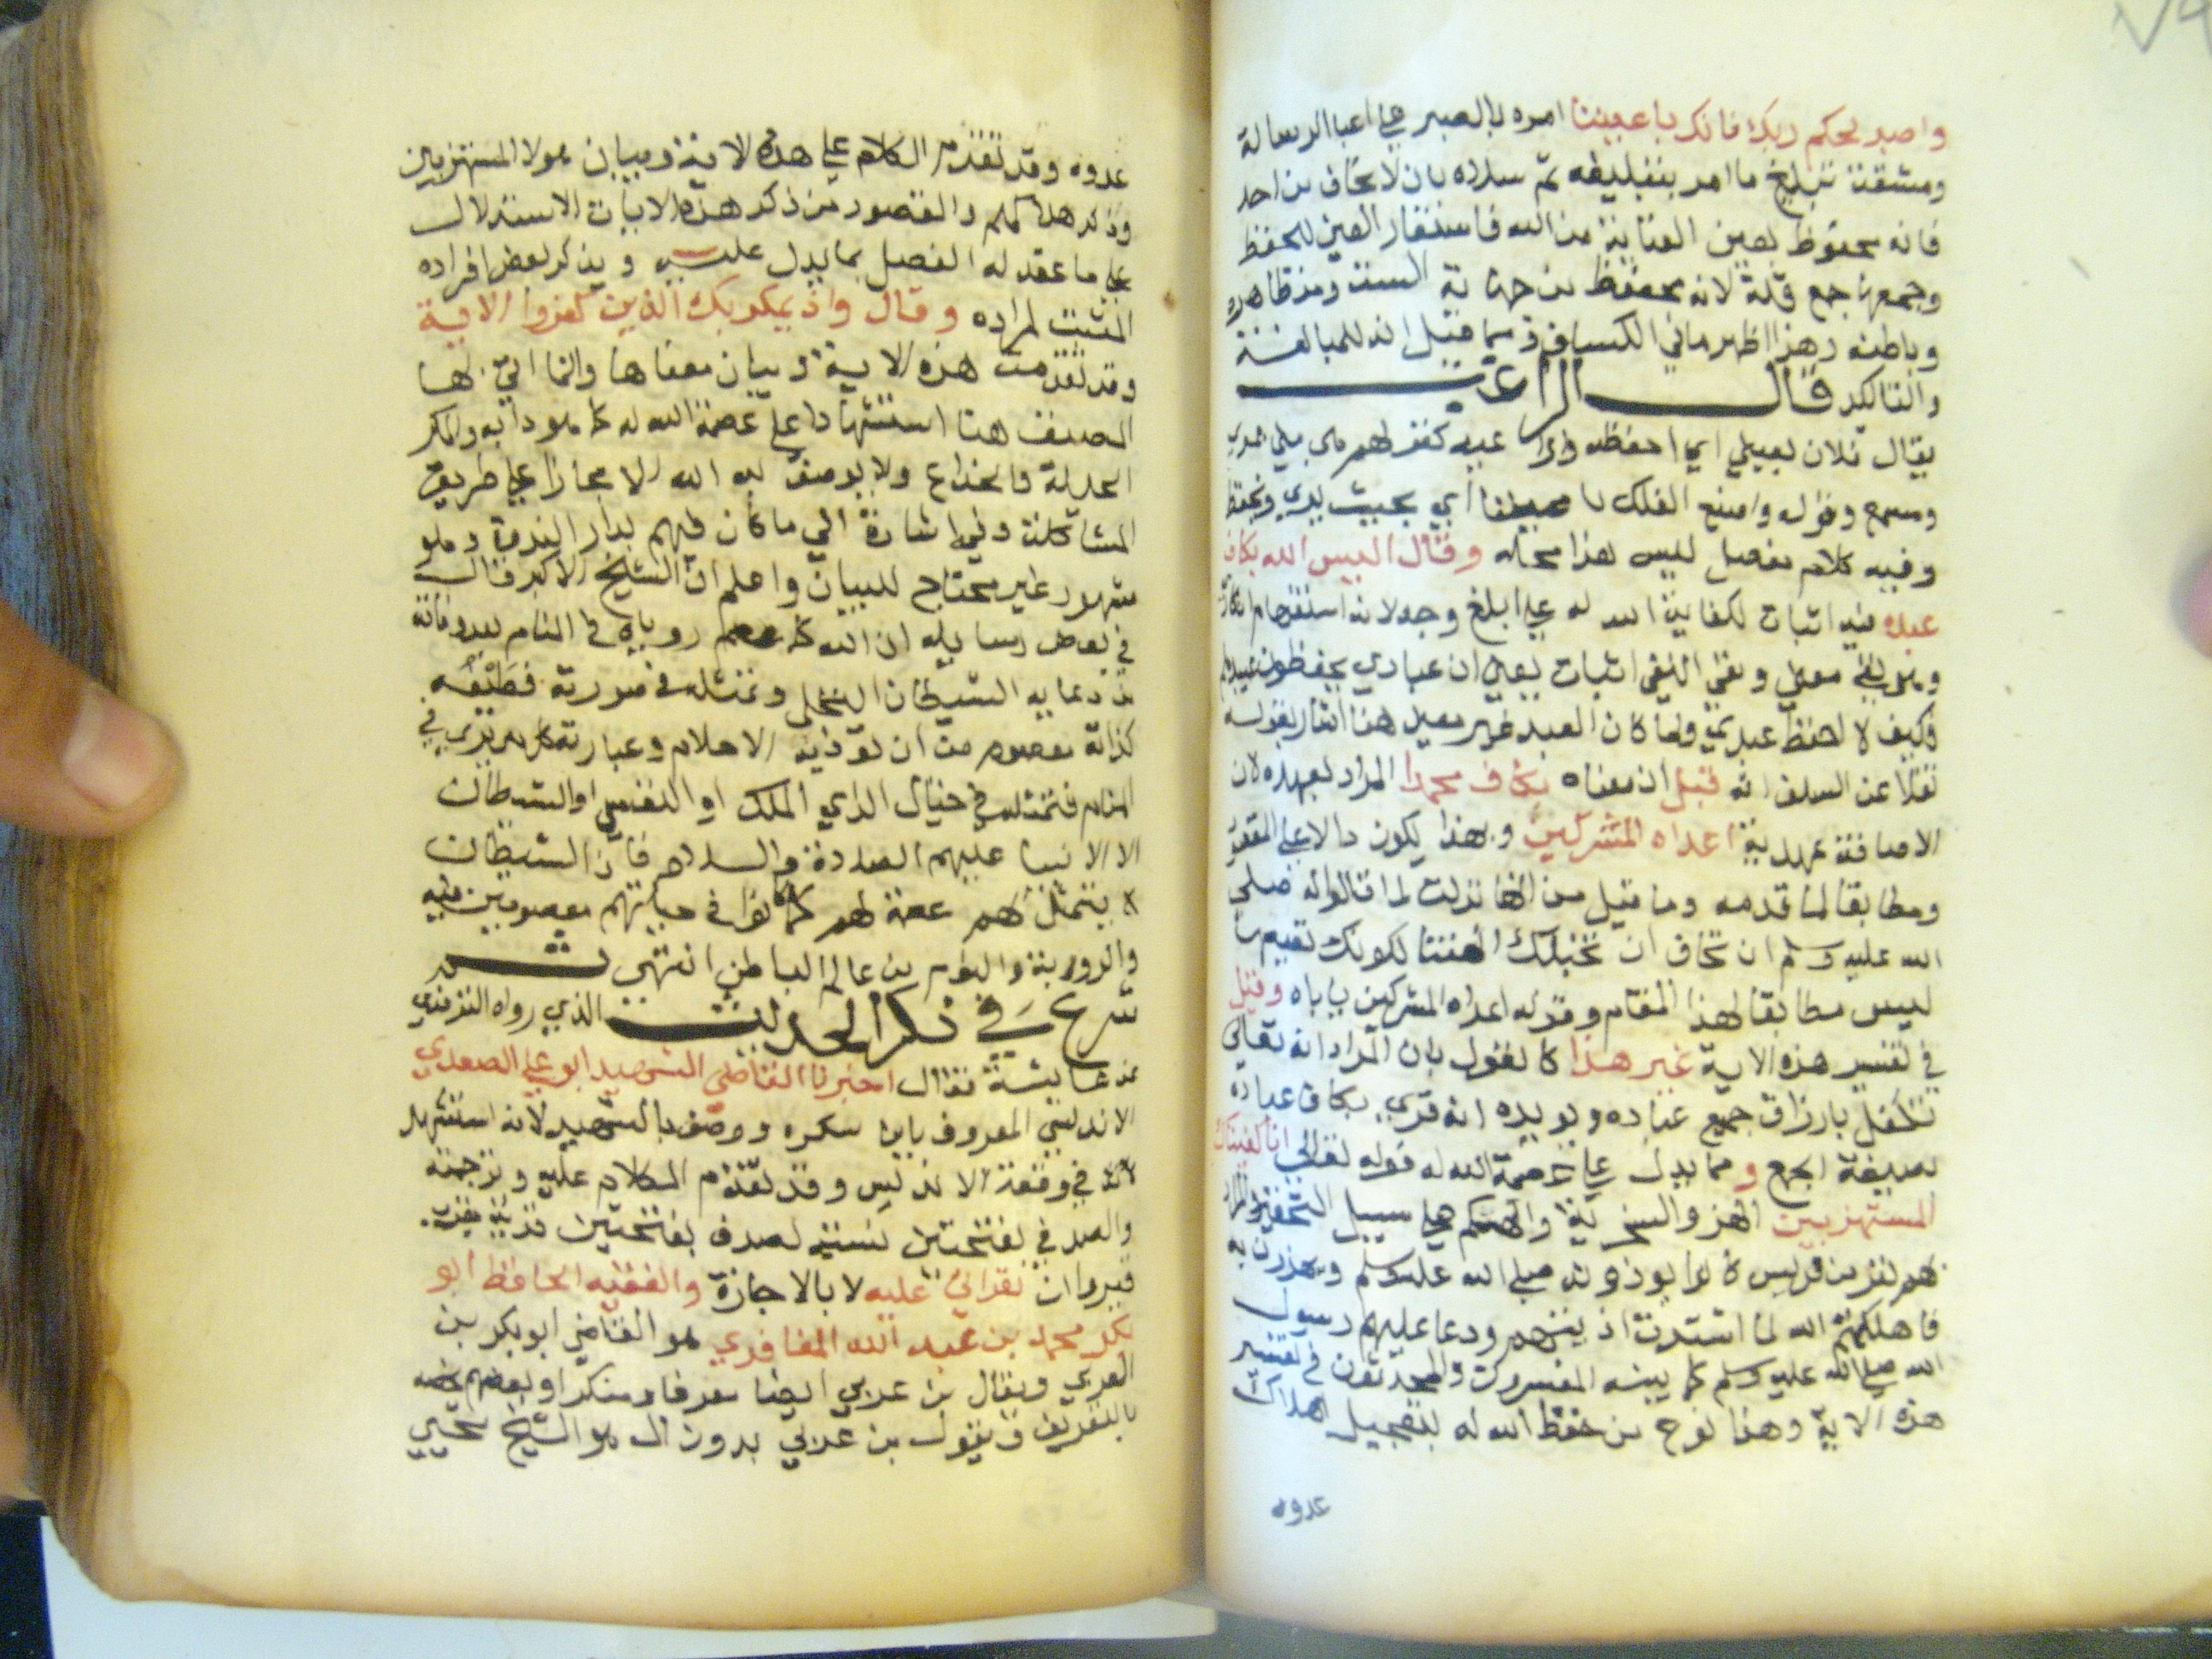 ٧٩
واصبر لحكم ربك فانك باعيننا امره بالصبر على اعبا الرسالة
ومشقت تبليغ ما امر بتبليغه ثم سلاه بان لا يخاف من احد
فانه محفوظ بعين العناية من الله فاستعار العين للحفظ
وجمعها جمع قلة لانه محفوظ من جهاته الست ومن ظاهره
وباطنه وهذا اظهر مما في الكشاف قيل انه للمبالغة
والتاكيد قال الراغب
يقال فلان بعيني اي احفظه
ومسمع وقوله واصنع الفلك اي بحيث يري ويحفظ
وفيه كلام مفصل ليس هذا محله وقال اليس الله بكاف
عبده فيه اثبات لكفاية الله له على ابلغ وجه لانه استفهام
ونفي النفي اثبات يعني ان عبادي يحفظون
فكيف لا احفظ عبدي ولما كان العبد غير معين هنا اشار بقوله
نقلا عن السلف انه قيل ان معناه بكاف محمدا المراد بعبده لان
الاضافة عهدية اعداه المشركين وبهذا يكون دالا على المقصود
ومطابقا لما قدمه وما قيل من انها نزلت لما قالوا له صلى
الله عليه وسلم ان نخاف ان تخبلك الهتنا لكونك تعيبها
ليس مطابقا لهذا المقام وقوله اعداه المشركين ياباه وقيل
في تفسير هذه الاية غير هذا كالقول بان المراد انه تعالى
تكفل بارزاق جميع عباده ويويده انه قري بكاف عباده
بصيغة الجمع ومما يدل على عصمة الله له قوله تعالى انا كفيناك
المستهزيين الهزو السخرية والتهكم على سبيل التحقير والمراد
هم نفر من قريش كانوا يوذونه صلى الله عليه وسلم ويهزون به
فاهلكهم الله لما اشتدت اذيتهم ودعا عليهم رسول
الله صلى الله عليه وسلم كما بينه المفسرون والمحدثون في تفسير
هذه الاية وهذا نوع من حفظ الله له بتعجيل اهلاك
عدوه
عدوه وقد تقدم الكلام على هذه الاية وبيان هولا المستهزيين
وذكر هلاكهم والمقصود من ذكر هذه الايات الاستدلال
على ما عقد له الفصل بما يدل عليه ويذكر بعض افراده
المثبت لمراده وقال واذ يمكر بك الذين كفروا الاية
وقد تقدمت هذه الاية وبيان معناها وانما اتى بها
المصنف هنا استشهادا على عصمة الله له كما هو دابه والمكر
الحيلة والخداع ولا يوصف به الله الا مجازا على طريق
المشاكلة وفيه اشارة الى ما كان فيهم بدار الندوة وهو
مشهور غير محتاج للبيان واعلم ان الشيخ الاكبر قال
في بعض رسايله ان الله كما عصم روياه في المنام بعد وفاته
من دعابه الشيطان التخيل وتمثله في صورته فطيفه
كذاته معصوم من ان توذيه الاحلام وعبارته كل من يري في
المنام فتمثله في خيال الراي الملك او النفس او الشيطان
الا الانبيا عليهم الصلاة والسلام فان الشيطان
لا يتمثل لهم عصمة لهم كما كانوا في حياتهم معصومين منه
والروية والنوم من عالم الباطن انتهى ثم
شرع في ذكر الحديث الذي رواه الترمذي
عن عايشة فقال اخبرنا القاضي الشهيد ابو علي الصدفي
الاندلسي المعروف بابن سكره ووصف بالشهيد لانه استشهد
في وقعة الاندلس وقد تقدم الكلام عليه وترجمته
والصدفي بفتحتين نسبة لصدف بفتحتين قرية بقرب
قيروان بقراتي عليه لا بالاجازة والفقيه الحافظ ابو
بكر محمد بن عبد الله المعافري هو القاضي ابو بكر بن
العربي ويقال بن عربي ايضا معرفا ومنكرا وبعضهم يخصه
بالتعريف ويقول بن عربي بدون ال هو الشيخ محيي